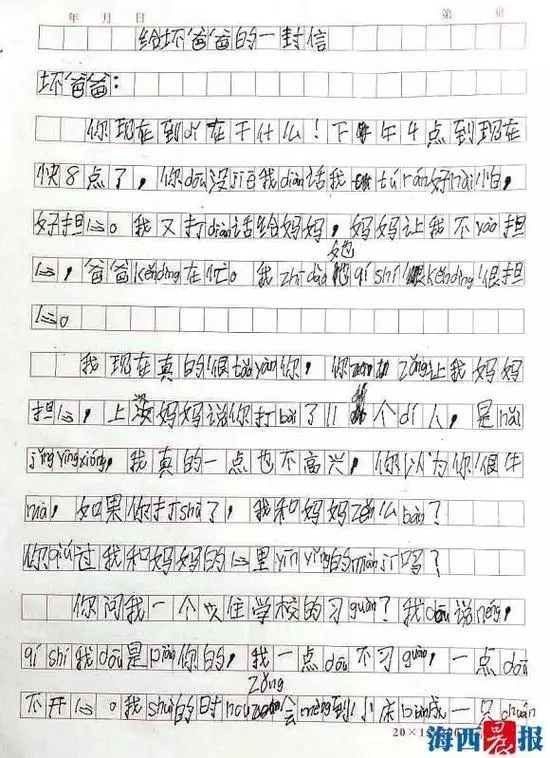 年 月 日 第 页
给坏爸爸的一封信
坏爸爸：
你现在到dǐ在干什么！下午4点到现在
快8点了，你dōu没jiē我diàn话我tú rán好hài怕，
好担心。我又打diàn话给妈妈，妈妈让我不yào担
心，爸爸kěndìng在忙。我zhī dào她qí shí kěndìng很担
心。
我现在真的很tǎo yàn你，你zǒng让我妈妈
担心，上次妈妈说你打bài了11个dí人，是hǎi
jǐng yīng xióng，我真的一点也不高兴，你以为你很牛
ma，如果你打shū了，我和妈妈zěn么bàn？
你 过我和妈妈的心里yīn yǐng的miàn jī吗？
你问我一个人住学校的习guàn？我dōu说néng，
qí shí我dōu是piàn你的，我一点dōu不习guàn，一点dōu
不开心。我shuì的时hou zǒng会mèng到小床biàn成一只chuán
20×15=300
海西晨报